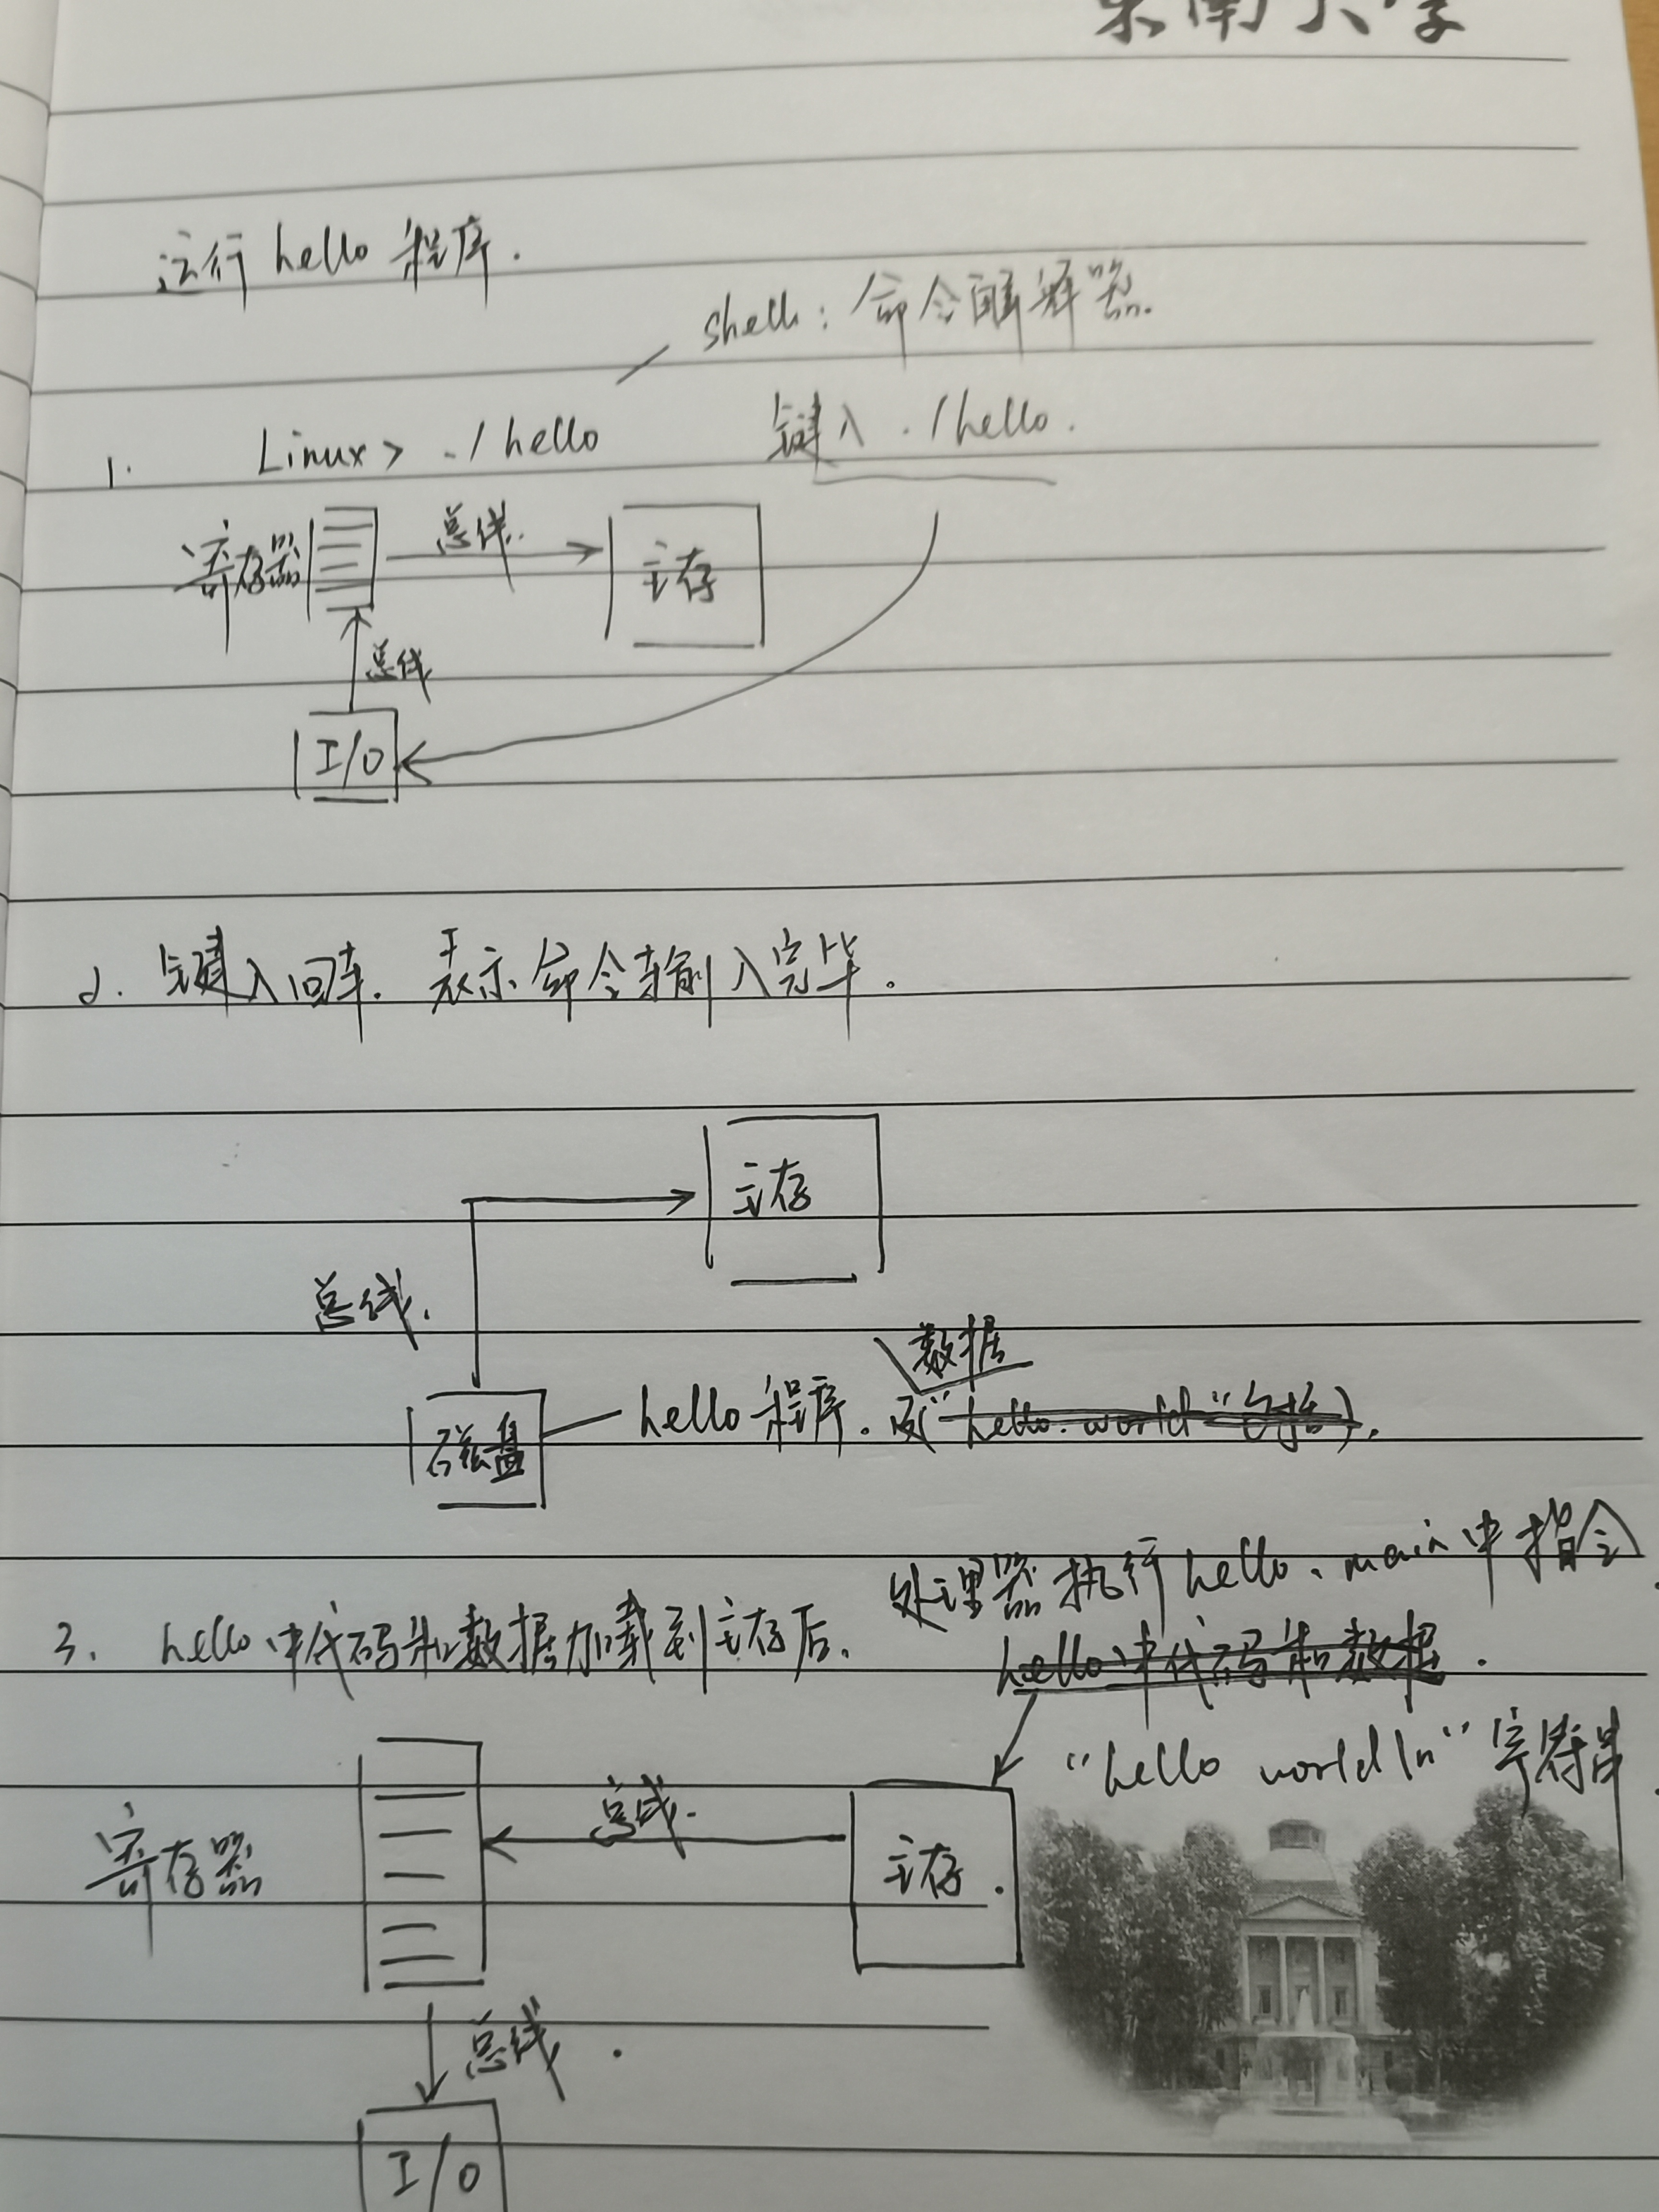 东南大学
运行 hello 程序.
shell: 命令解释器.
1. Linux> ./hello 键入 ./hello.
寄存器 总线. 主存
总线
I/O
2. 键入回车. 表示命令输入完毕.
主存
总线.
数据
磁盘 hello 程序. 及"hello. world"
处理器执行 hello、main 中指令.
3. hello 中代码和数据加载到主存后.
hello 中代码和数据.
"hello world\n" 字符串.
总线.
寄存器 主存.
总线.
I/O